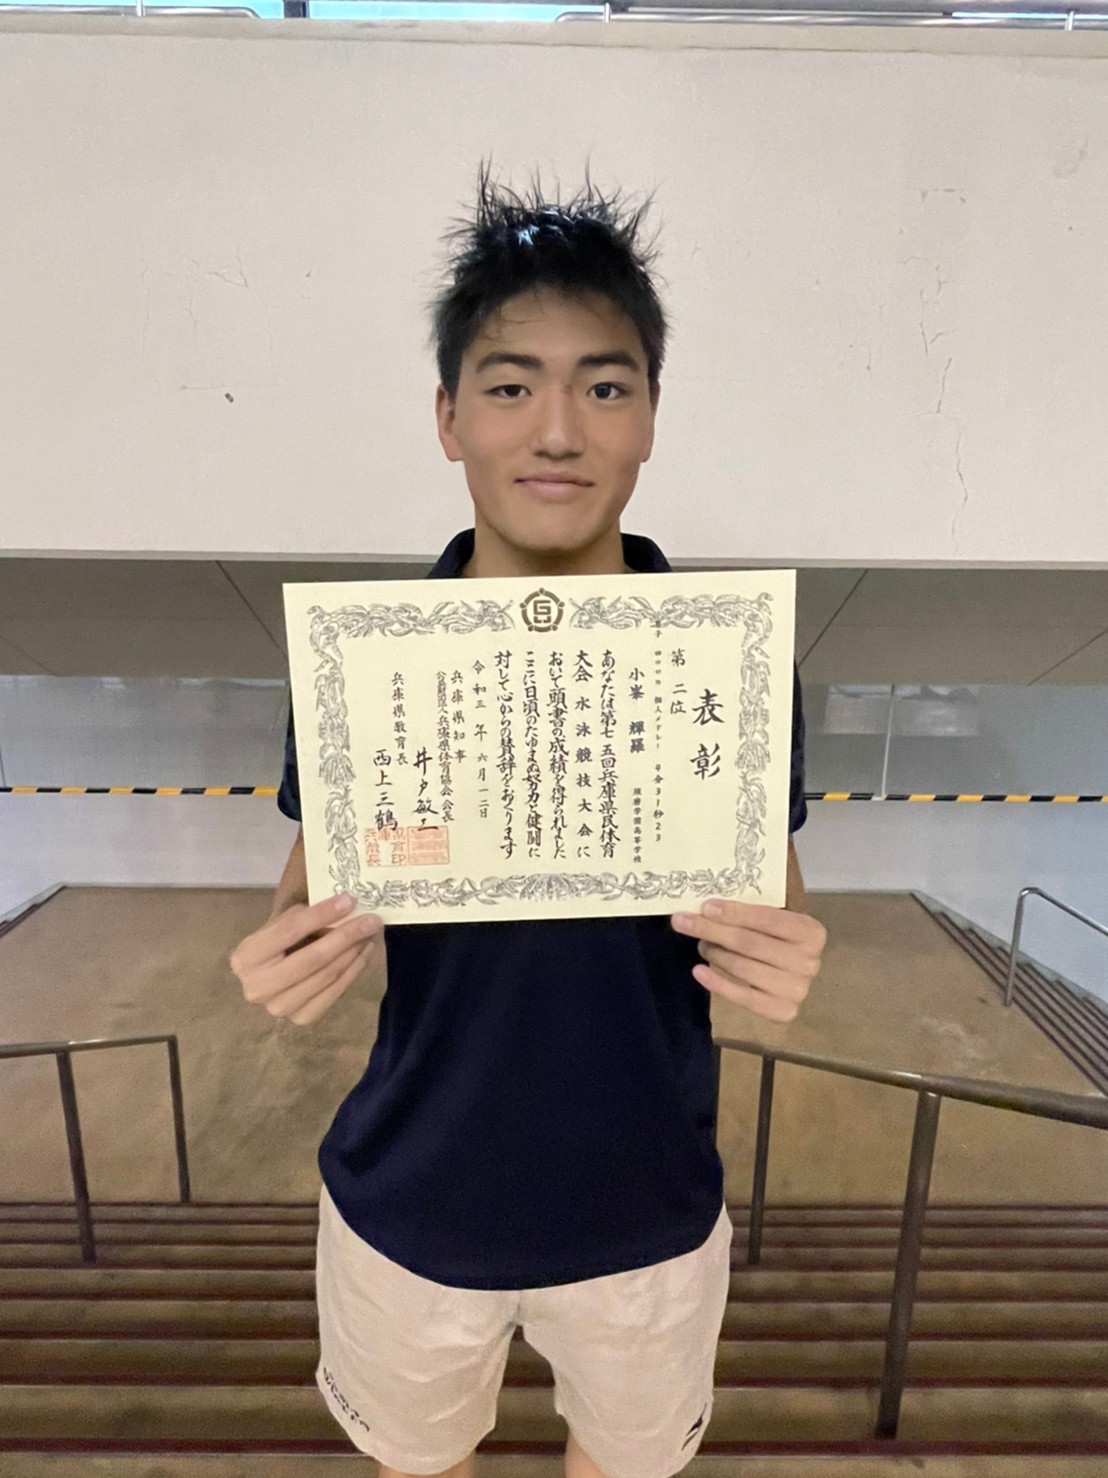 表彰
第二位
子 四〇〇m 個人メドレー 4分31秒23
小峯 輝羅 須磨学園高等学校
あなたは第七五回兵庫県民体育
大会水泳競技大会に
おいて頭書の成績を得られました
ここに日頃のたゆまぬ努力と健闘に
対して心からの賛辞をおくります
令和三年六月一二日
兵庫県知事
公益財団法人兵庫県体育協会会長
井戸敏三
兵庫県教育長
西上三鶴